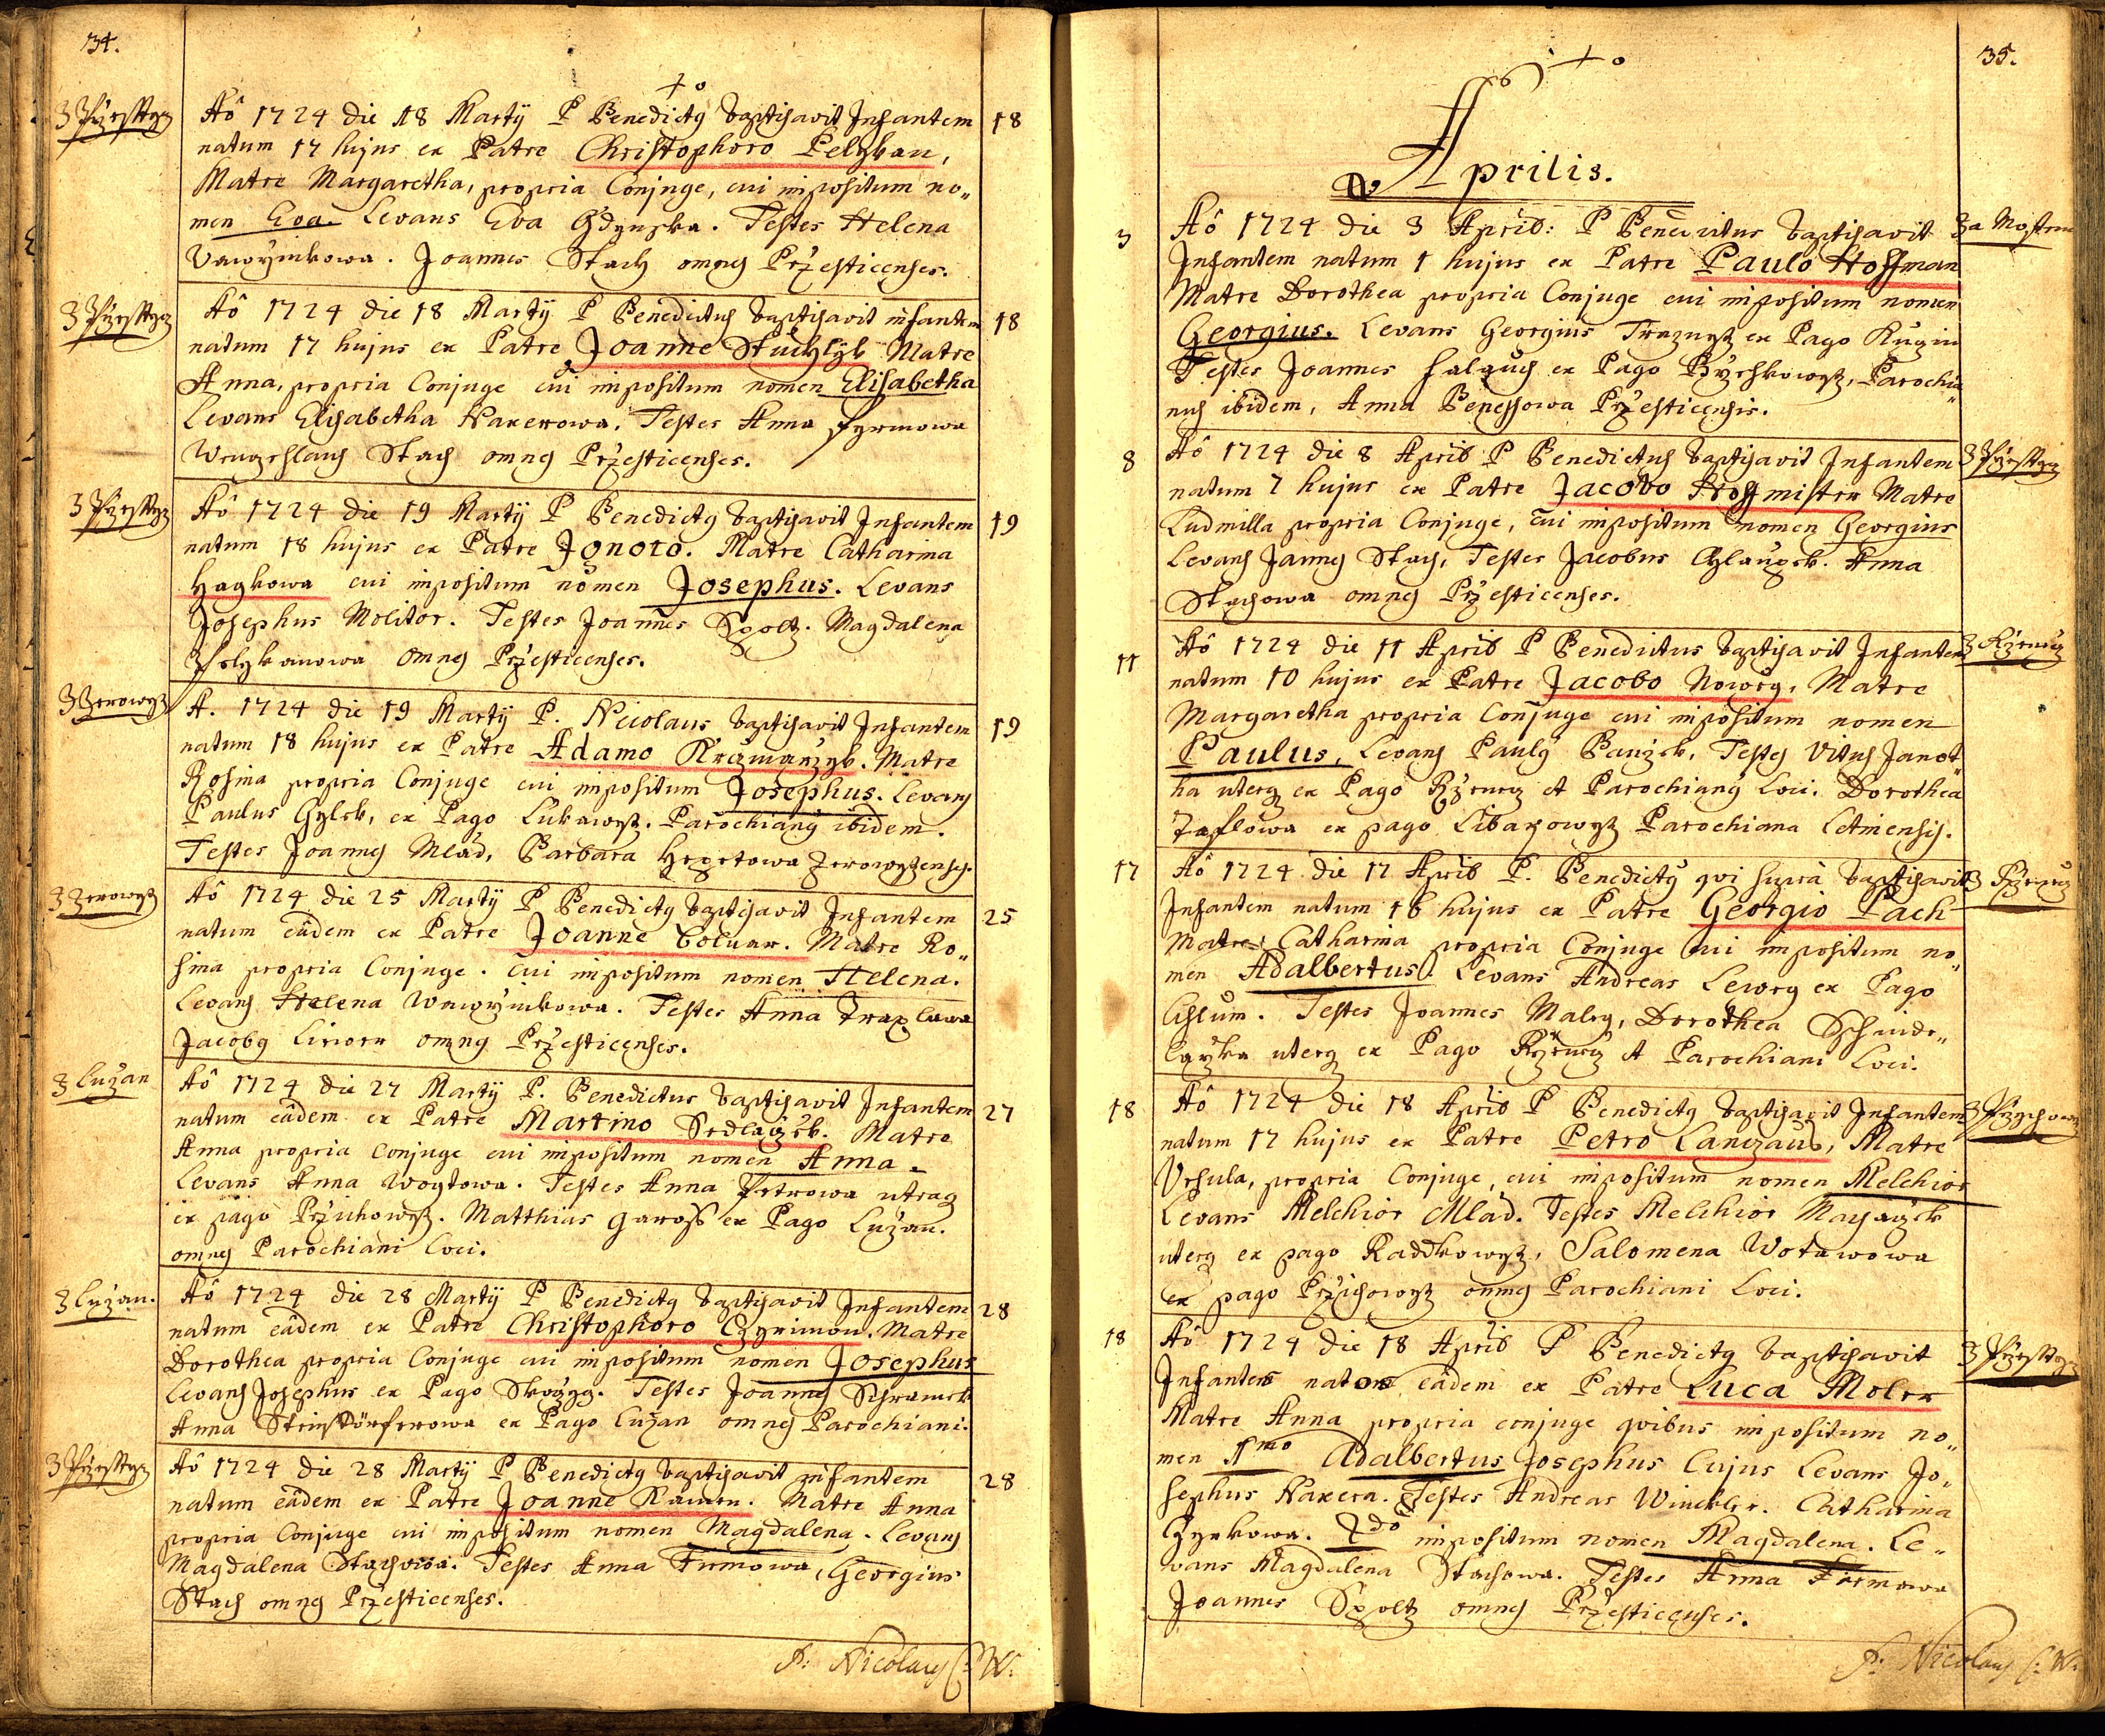 34.
Aô 1724 die 18 Martÿ P Benedictq baptisavit Infantem 18
natum 17 hujus ex Patre Christophoro Pelykan,
Matre Margaretha, propria Conjuge, cui impositum no„
men Eva. Levans Eva Gdynska. Testes Helena
Joannes Stach omnes Przesticenses.
Aô 1724 die 18 Martÿ P Benedictus baptisavit infantem 18
natum 17 hujus ex Patre Joanne Stuchlyk Matre
Anna, propria Conjuge cui impositum nomen Elisabetha
Levans Elisabetha Naxerowa. Testes Anna Fyrmowa
Wenzeslaus Stach omnes Przesticenses.
Aô 1724 die 19 Martÿ P Benedictq baptisavit Infantem 19
natum 18 hujus ex Patre Jgnoto. Matre Catharina
Hagkowa cui impositum nomen Josephus. Levans
Josephus Molitor. Testes Joannes Spoltz. Magdalena
Pelykanowa Omnes Przesticenses.
3 Zerowyz
A. 1724 die 19 Martÿ P. Nicolaus baptisavit Infantem 19
natum 18 hujus ex Patre Adamo Krzmarzyk. Matre
Rosina propria Conjuge cui impositum Josephus. Levans
Paulus Gylek, ex Pago Lukawyz. Parochianq ibidem.
Testes Joannes Mlad, Barbara Hegrtowa Zerowyzenses.
3 Zerowyz
Aô 1724 die 25 Martÿ P Benedictq baptisavit Infantem 25
natum eâdem ex Patre Joanne Matre Ro„
sina propria Conjuge. cui impositum nomen Helena.
Levans Helena Testes Anna
Jacobq omnes Przesticenses.
3 Luzan
Aô 1724 die 27 Martÿ P. Benedictus baptisavit Infantem 27
natum eâdem ex Patre Martino Sedlaczek. Matre
Anna propria Conjuge cui impositum nomen Anna.
Levans Anna Woytowa. Testes Anna Petrowa utraq
ex pago Przichowyz. Matthias Gaross ex Pago Luzan.
omnes Parochiani loci.
3 Luzan.
Aô 1724 die 28 Martÿ P Benedictq baptisavit Infantem 28
natum eâdem ex Patre Christophoro Czyrimon. Matre
Dorothea propria Conjuge cui impositum nomen Josephus
Levans Josephus ex Pago Testes Joannes Schramek
Anna ex Pago Luzan omnes Parochiani.
Aô 1724 die 28 Martÿ P Benedictq baptisavit infantem 28
natum eâdem ex Patre Joanne Matre Anna
propria Conjuge cui impositum nomen Magdalena. Levans
Magdalena Stachowa. Testes Anna Firmowa, Georgius
Stach omnes Przesticenses.
P: Nicolaus C: W:
35.
Aprilis.
3 Aô 1724 die 3 April: P Benedictus baptisavit
Infantem natum 1 hujus ex Patre Paulo Hoffman
Matre Dorothea propria Conjuge cui impositum nomen
Georgius. Levans Georgius ex Pago
Testes Joannes ex Pago Parochia„
nus ibidem, Anna Benessowa Przesticensis.
8 Aô 1724 die 8 April P Benedictus baptisavit Infantem
natum 7 hujus ex Patre Jacobo Hoffmister Matre
Ludmilla propria Conjuge, cui impositum nomen Georgius
Levans Joannes Stach, Testes Jacobus Anna
Stachowa omnes Przesticenses.
11 Aô 1724 die 11 April P Benedictus baptisavit Infantem
natum 10 hujus ex Patre Jacobo Nowey, Matre
Margaretha propria Conjuge cui impositum nomen
Paulus, Levans Paulq Testes Vitus Janot„
ka uterq ex Pago et Parochianq loci. Dorothea
ex pago Libakowyz Parochiana Letinensis.
17 Aô 1724 die 17 April P. Benedictq qvi supra baptisavit
Infantem natum 16 hujus ex Patre Georgio Pach
Matre Catharina propria Conjuge cui impositum no„
men Adalbertus. Levans Andreas Lewey ex Pago
Cislum. Testes Joannes Maley, Dorothea
uterq ex Pago et Parochiani Loci.
18 Aô 1724 die 18 April P Benedictq baptisavit Infantem
natum 17 hujus ex Patre Petro Matre
Vrsula, propria Conjuge, cui impositum nomen Melchior
Levans Melchior Mlad. Testes Melchior
uterq ex pago Radkowyz, Salomena Wotawowa
ex pago Przichowyz omnes Parochiani Loci.
18 Aô 1724 die 18 April P Benedictq baptisavit
Infantes natos eâdem ex Patre Luca Moler
Matre Anna propria conjuge qvibus impositum no„
men 1mo Adalbertus Josephus Cujus Levans Jo„
sephus Naxera. Testes Andreas Winckler. Catharina
2do impositum nomen Magdalena. Le„
vans Magdalena Stachowa. Testes Anna Firmowa
Joannes Spoltz omnes Przesticenses.
P: Nicolaus C: W: